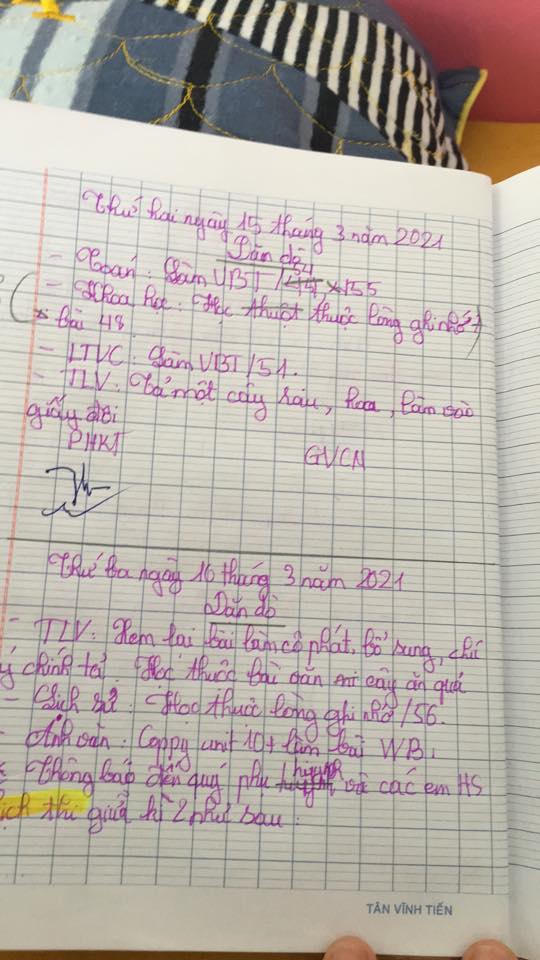 Thứ hai ngày 15 tháng 3 năm 2021
Dặn dò
- Toán : Làm VBT / 54 + 55
- Khoa học : Học thuột thuộc lòng ghi nhớ
bài 48
- LTVC : Làm VBT / 51.
- TLV : Tả một cây rau, hoa, làm vào
giấy đôi
PHKT
GVCN
Thứ ba ngày 16 tháng 3 năm 2021
Dặn dò
- TLV : Xem lại bài làm cô phát, bổ sung, chú
ý chính tả. Học thuộc bài văn cây ăn quả
- Lịch sử : Học thuộc lòng ghi nhớ / 56.
- Anh văn : Coppy unit 10 + làm bài WB.
Thông báo đến quý phụ huynh và các em HS
lịch thi giữa kì 2 như sau :
TÂN VĨNH TIẾN